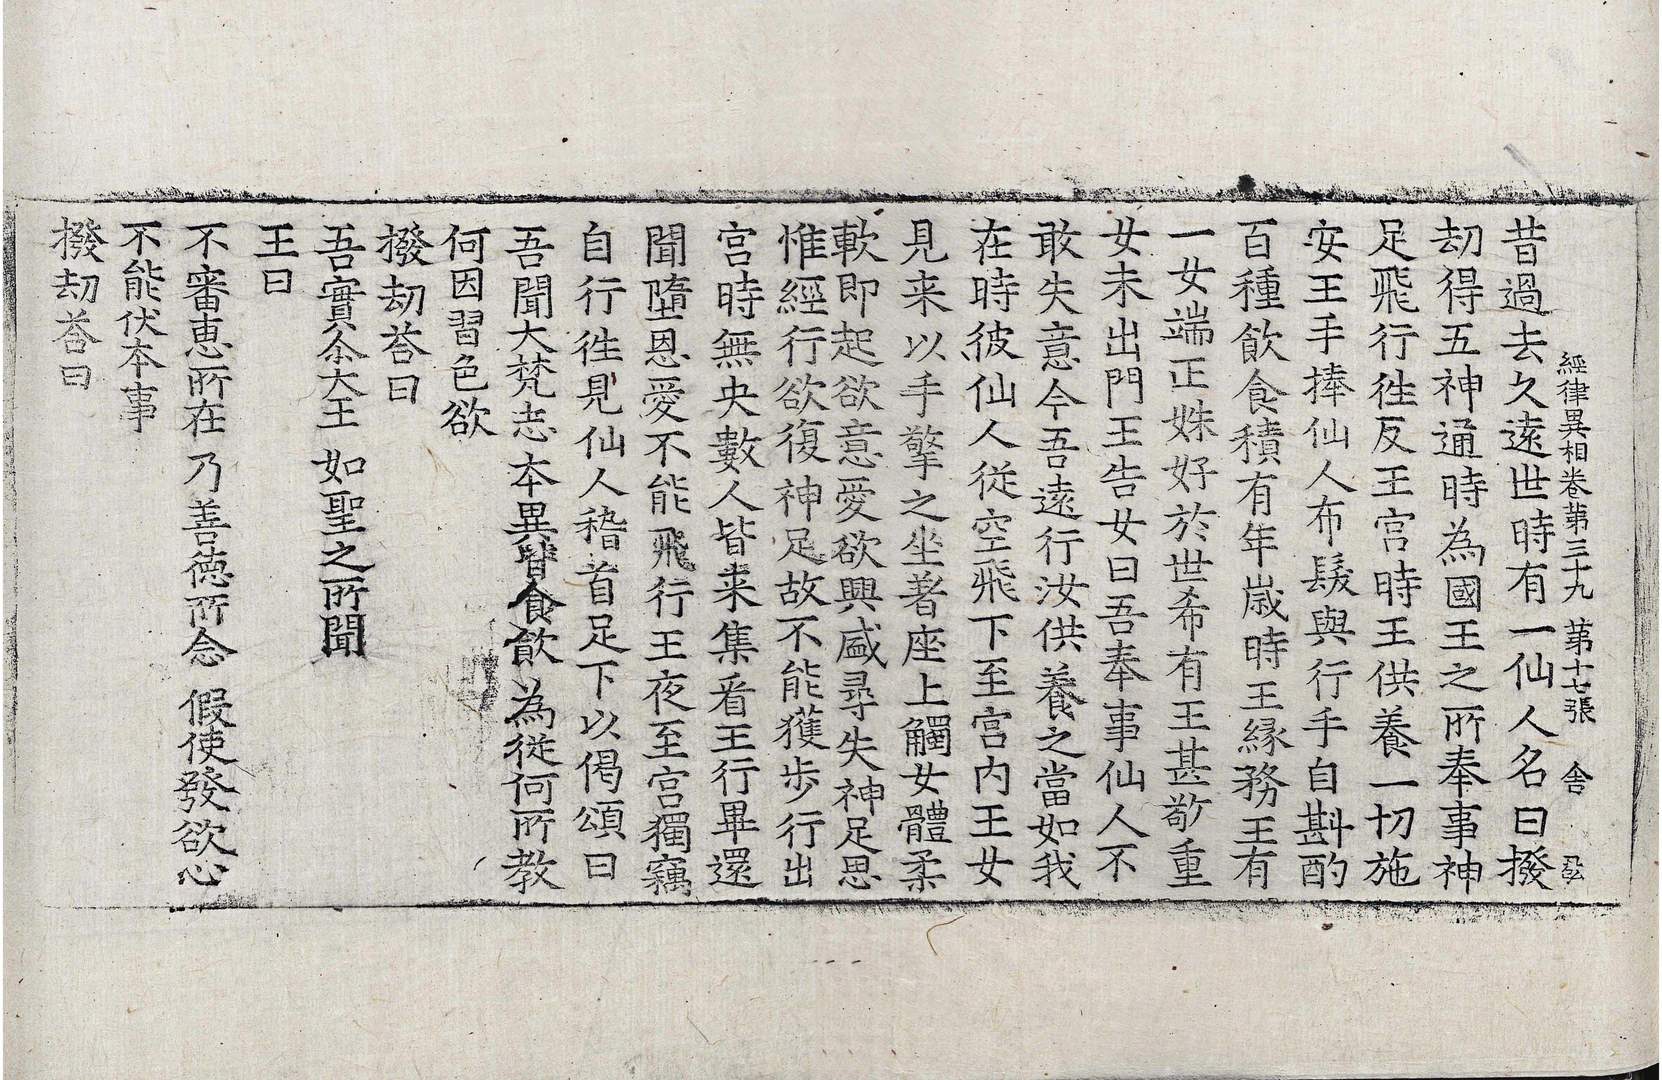 經律異相卷第三十九 第十七張 舍
昔過去久遠世時有一仙人名曰撥
劫得五神通時為國王之所奉事神
足飛行徃反王宮時王供養一切施
安王手捧仙人布髮與行手自斟酌
百種飲食積有年歲時王緣務王有
一女端正姝好於世希有王甚敬重
女未出門王告女曰吾奉事仙人不
敢失意今吾遠行汝供養之當如我
在時彼仙人從空飛下至宮內王女
見来以手擎之坐著座上觸女體柔
軟即起欲意愛欲興盛尋失神足思
惟經行欲復神足故不能獲步行出
宮時無央數人皆来集看王行畢還
聞墮恩愛不能飛行王夜至宮獨竊
自行徃見仙人稽首足下以偈頌曰
吾聞大梵志 本異皆食飲 為從何所教
何因習色欲
撥劫荅曰
吾實尒大王 如聖之所聞
王曰
不審恵所在 乃善德所念 假使發欲心
不能伏本事
撥劫荅曰